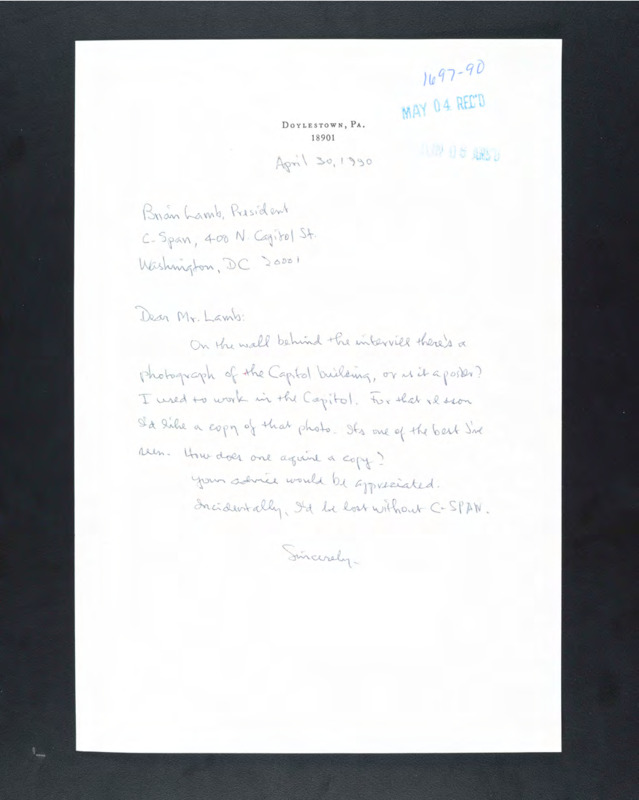 1697-90
MAY 04 REC'D
DOYLESTOWN, PA.
18901
April 30, 1990
Brian Lamb, President
C-Span, 400 N. Capitol St.
Washington, DC 20001
Dear Mr. Lamb:
On the wall behind the there's a
photograph of the Capitol building, or is it a poster?
I used to work in the Capitol. For that reason
I'd like a copy of that photo. Its one of the best I've
seen. How does one aquire a copy?
Your advice would be appreciated.
Incidentally, I'd be lost without C-SPAN.
Sincerely-